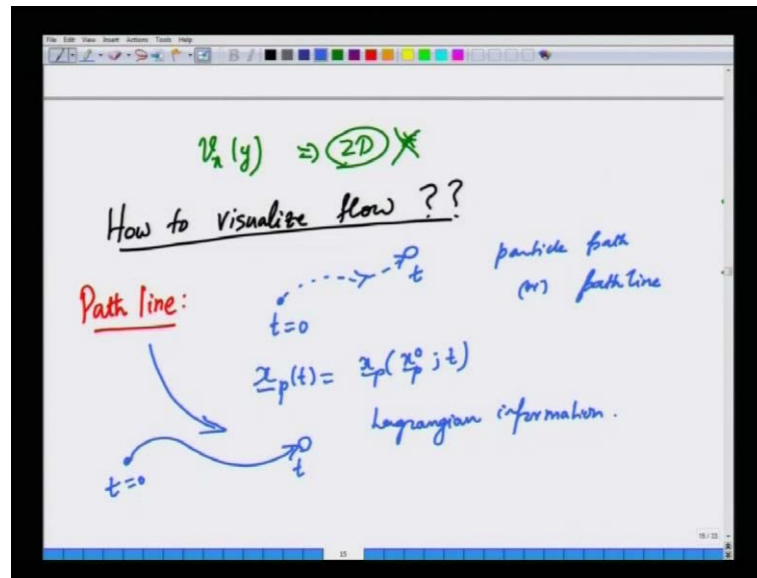 File Edit View Insert Actions Tools Help
B I
v_x (y) ⇒ 2D
How to visualize flow ??
particle path
(or) path line
Path line:
t
t=0
x_p(t) = x_p(x_p^0 ; t)
Lagrangian information.
t=0
t
15/23
15